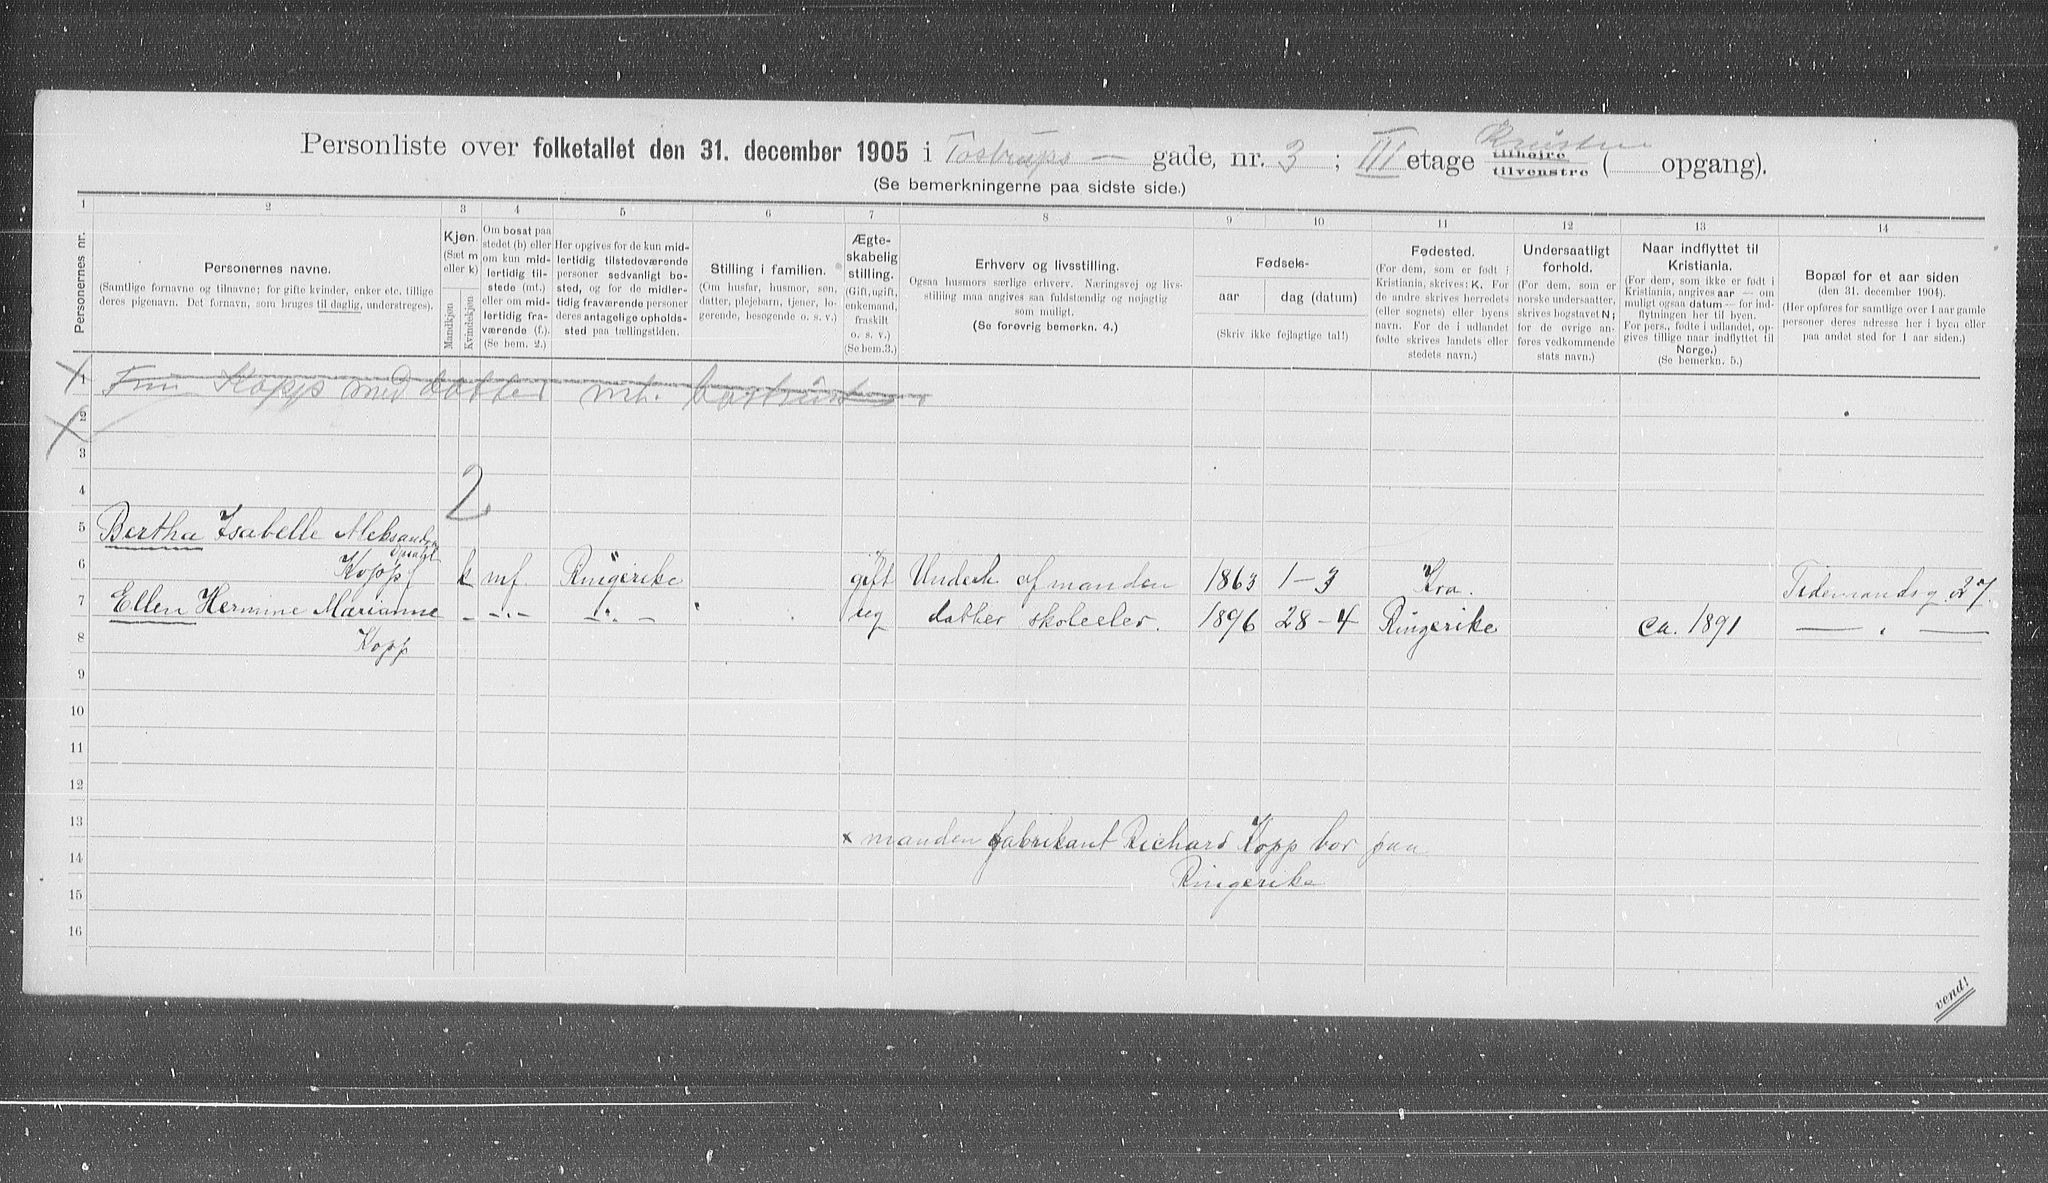 Personliste over folketallet den 31. december 1905 i Tostrups — gade, nr. 3 ; III etage tilhøire tilvenstre ( opgang).
(Se bemerkningerne paa sidste side.)
1 2 3 4 5 6 7 8 9 10 11 12 13 14
Personernes nr.
Personernes navne.
(Samtlige fornavne og tilnavne; for gifte kvinder, enker etc. tillige
deres pigenavn. Det fornavn, som bruges til daglig, understreges).
Kjøn.
(Sæt m
eller k)
Mandkjøn
Kvindekjøn
Om bosat paa
stedet (b) eller
om kun mid-
lertidig til-
stede (mt.)
eller om mid-
lertidig fra-
værende (f.).
(Se bem. 2.)
Her opgives for de kun mid-
lertidig tilstedeværende
personer sedvanligt bo-
sted, og for de midler-
tidig fraværende personer
deres antagelige opholds-
sted paa tællingstiden.
Stilling i familien.
(Om husfar, husmor, søn,
datter, plejebarn, tjener, lo-
gerende, besøgende o. s. v.)
Ægte-
skabelig
stilling.
(Gift, ugift,
enkemand,
fraskilt
o. s. v.)
(Se bem.3.)
Erhverv og livsstilling.
Ogsaa husmors særlige erhverv. Næringsvej og livs-
stilling maa angives saa fuldstændig og nøjagtig
som muligt.
(Se forøvrig bemerkn. 4.)
Fødsels-
aar dag (datum)
(Skriv ikke fejlagtige tal!)
Fødested.
(For dem, som er født i
Kristiania, skrives: K. For
de andre skrives herredets
(eller sognets) eller byens
navn. For de i udlandet
fødte skrives landets eller
stedets navn.)
Undersaatligt
forhold.
(For dem, som er
norske undersaatter,
skrives bogstavet N;
for de øvrige an-
føres vedkommende
stats navn.)
Naar indflyttet til
Kristiania.
(For dem, som ikke er født i
Kristiania, angives aar — om
muligt ogsaa datum — for ind-
flytningen her til byen.
For pers., fødte i udlandet, op-
gives tillige naar indflyttet til
Norge.)
(Se bemerkn. 5.)
Bopæl for et aar siden
(den 31. december 1904).
(Her opføres for samtlige over 1 aar gamle
personer deres adresse her i byen eller
paa andet sted for 1 aar siden.)
1 Fru Kopp med datter mt.
2
3
4 2
5 Bertha Isabelle Aleksandra
6 Kopp f k mf Ringerike gift Underh. af manden 1863 1–3 Kra. Tidemands g. 27.
7 Ellen Hermine Marianne –„– –„– ug datter skoleelev. 1896 28–4 Ringerike ca. 1891 — „ —
8 Kopp
9
10
11
12
13 x manden fabrikant Richard Kopp bor paa
14 Ringerike
15
16
vend!